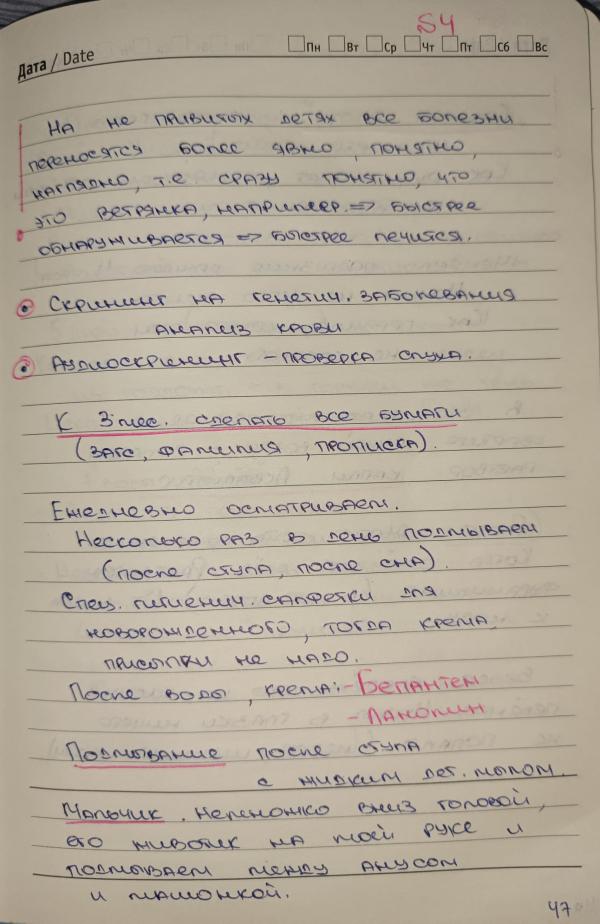 54
Дата / Date Пн Вт Ср Чт Пт Сб Вс
На не привитых детях все болезни
переносятся более явно, понятно,
наглядно, т.е сразу понятно, что
это ветрянка, например. => быстрее
обнаруживается => быстрее лечится.
• Скрининг на генетич. заболевания
анализ крови
• Аудиоскрининг - проверка слуха.
К 3 мес. сделать все бумаги
(ЗАГС, фамилия, прописка).
Ежедневно осматриваем.
Несколько раз в день подмываем
(после стула, после сна).
Спец. гигиенич. салфетки для
новорожденного, тогда крема,
присыпки не надо.
После воды, крема: - Бепантен
- Ланолин
Подмывание после стула
с жидким дет. мылом.
Мальчик. Немножко вниз головой,
его животик на моей руке и
подмываем между анусом
и мошонкой.
47